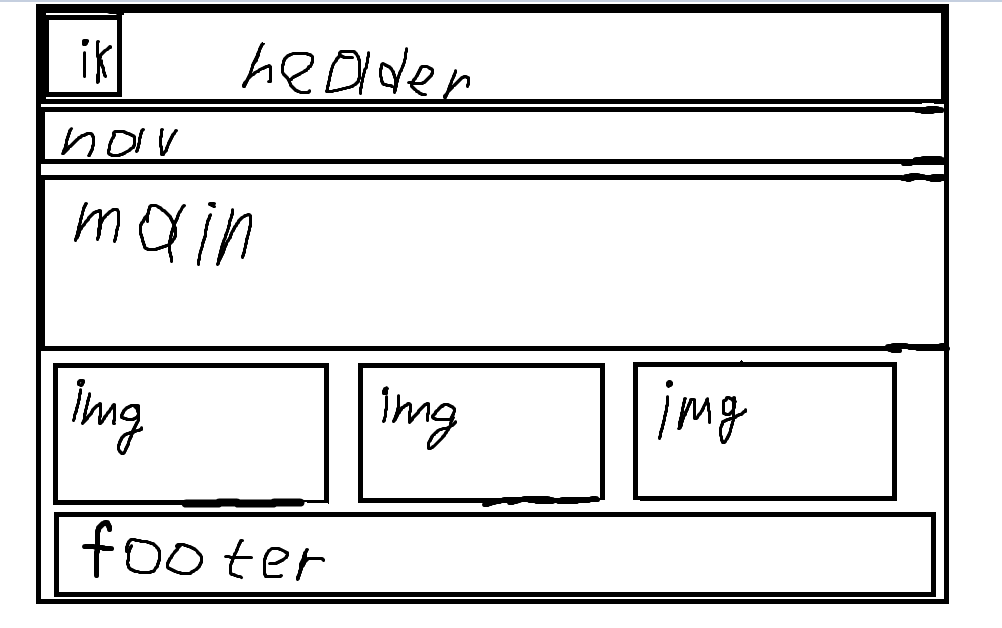 ik
header
nav
main
img
img
img
footer